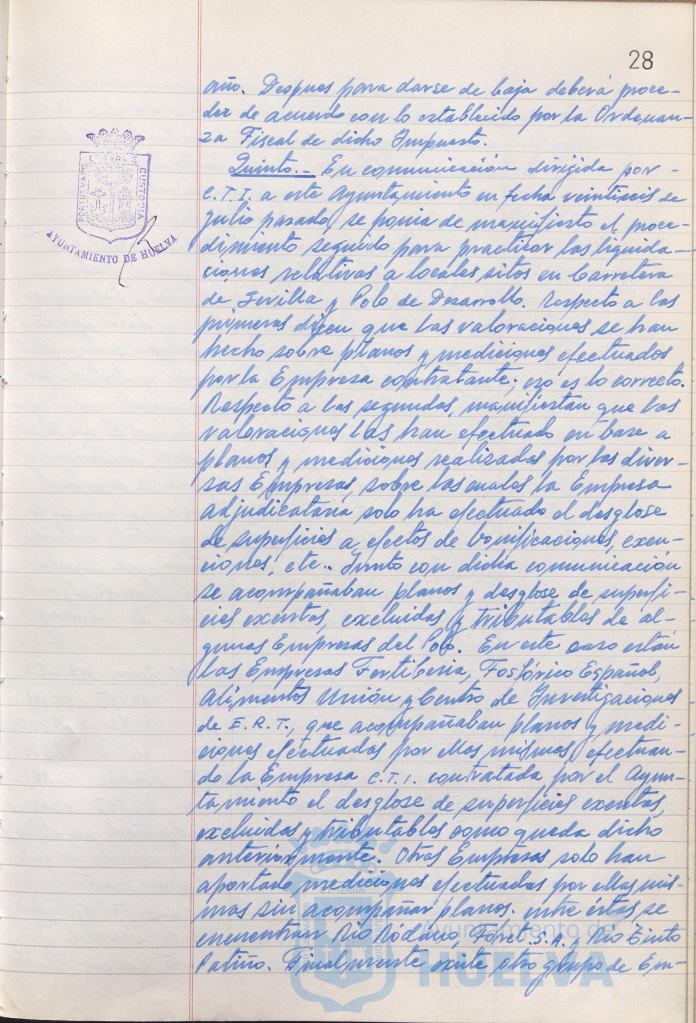 28
año. Despues para darse de baja deberá proce-
der de acuerdo con lo establecido por la Ordenan-
za Fiscal de dicho Impuesto.
Quinto.- En comunicación dirigida por -
C.T.I. a este Ayuntamiento en fecha veintiseis de
julio pasado, se ponia de manifiesto el proce-
dimiento seguido para practicar las liquida-
ciones relativas a locales sitos en Carretera
de Sevilla y Polo de Desarrollo. Respecto a las
primeras dicen que las valoraciones se han
hecho sobre planos y mediciones efectuados
por la Empresa contratante; eso es lo correcto.
Respecto a las segundas, manifiestan que las
valoraciones las han efectuado en base a
planos y mediciones realizadas por las diver-
sas Empresas, sobre las cuales la Empresa
adjudicataria solo ha efectuado el desglose
de superficies a efectos de bonificaciones, exen-
ciones, etc.. Junto con dicha comunicación
se acompañaban planos y desglose de superfi-
cies exentas, excluidas y tributables de al-
gunas Empresas del Polo. En este caso están
las Empresas Fertiberia, Fosfórico Español,
Alimentos Unión y Centro de Investigaciones
de E.R.T., que acompañaban planos y medi-
ciones efectuadas por ellas mismas, efectuan-
do la Empresa C.T.I. contratada por el Ayun-
tamiento el desglose de superficies exentas,
excluidas y tributables como queda dicho
anteriormente. Otras Empresas solo han
aportado mediciones efectuadas por ellas mis-
mas sin acompañar planos. entre éstas se
encuentran Rio Ródano, Foret S.A. y Rio Tinto
Patiño. Finalmente existe otro grupo de Em-
PORTUS MARIS
ET TERRAE
CUSTODIA
AYUNTAMIENTO DE HUELVA
Ayuntamiento de
HUELVA